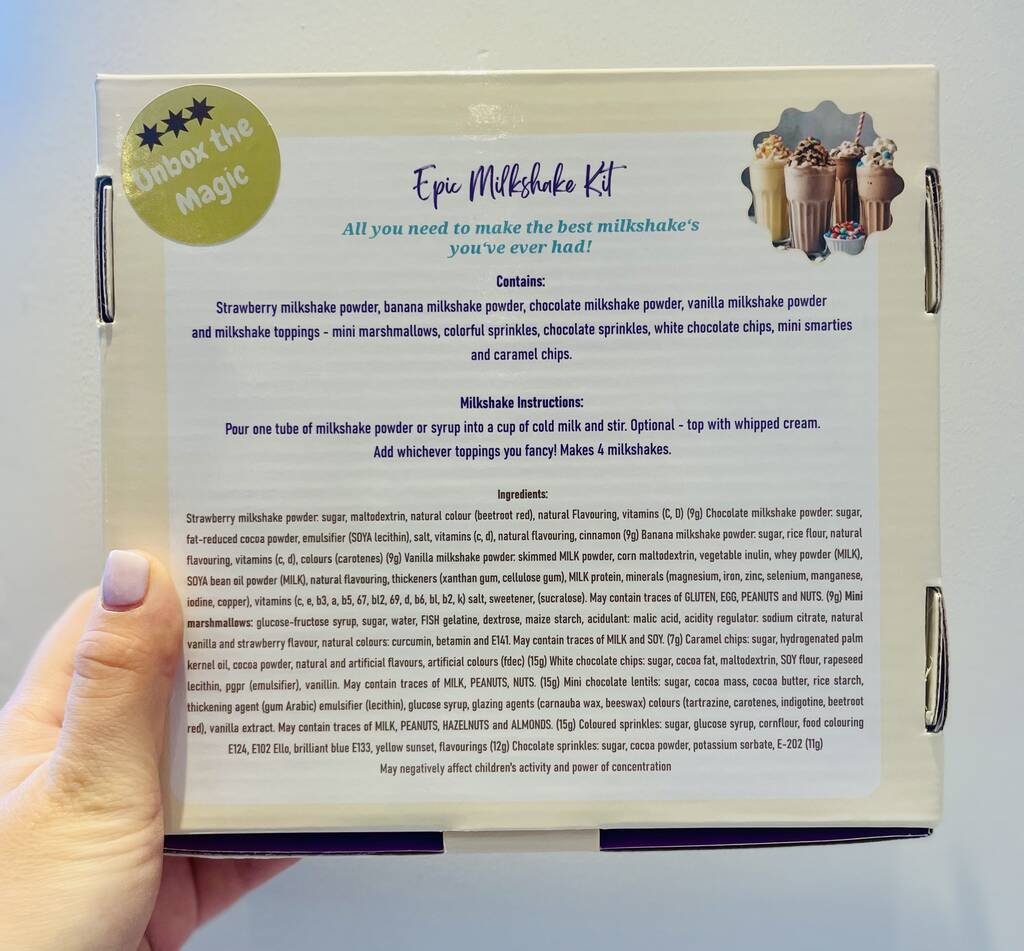 Unbox the
Magic
Epic Milkshake Kit
All you need to make the best milkshake's
you've ever had!
Contains:
Strawberry milkshake powder, banana milkshake powder, chocolate milkshake powder, vanilla milkshake powder
and milkshake toppings - mini marshmallows, colorful sprinkles, chocolate sprinkles, white chocolate chips, mini smarties
and caramel chips.
Milkshake Instructions:
Pour one tube of milkshake powder or syrup into a cup of cold milk and stir. Optional - top with whipped cream.
Add whichever toppings you fancy! Makes 4 milkshakes.
Ingredients:
Strawberry milkshake powder: sugar, maltodextrin, natural colour (beetroot red), natural Flavouring, vitamins (C, D) (9g) Chocolate milkshake powder: sugar,
fat-reduced cocoa powder, emulsifier (SOYA lecithin), salt, vitamins (c, d), natural flavouring, cinnamon (9g) Banana milkshake powder: sugar, rice flour, natural
flavouring, vitamins (c, d), colours (carotenes) (9g) Vanilla milkshake powder: skimmed MILK powder, corn maltodextrin, vegetable inulin, whey powder (MILK),
SOYA bean oil powder (MILK), natural flavouring, thickeners (xanthan gum, cellulose gum), MILK protein, minerals (magnesium, iron, zinc, selenium, manganese,
iodine, copper), vitamins (c, e, b3, a, b5, 67, bl2, 69, d, b6, bl, b2, k) salt, sweetener, (sucralose). May contain traces of GLUTEN, EGG, PEANUTS and NUTS. (9g) Mini
marshmallows: glucose-fructose syrup, sugar, water, FISH gelatine, dextrose, maize starch, acidulant: malic acid, acidity regulator: sodium citrate, natural
vanilla and strawberry flavour, natural colours: curcumin, betamin and E141. May contain traces of MILK and SOY. (7g) Caramel chips: sugar, hydrogenated palm
kernel oil, cocoa powder, natural and artificial flavours, artificial colours (fdec) (15g) White chocolate chips: sugar, cocoa fat, maltodextrin, SOY flour, rapeseed
lecithin, pgpr (emulsifier), vanillin. May contain traces of MILK, PEANUTS, NUTS. (15g) Mini chocolate lentils: sugar, cocoa mass, cocoa butter, rice starch,
thickening agent (gum Arabic) emulsifier (lecithin), glucose syrup, glazing agents (carnauba wax, beeswax) colours (tartrazine, carotenes, indigotine, beetroot
red), vanilla extract. May contain traces of MILK, PEANUTS, HAZELNUTS and ALMONDS. (15g) Coloured sprinkles: sugar, glucose syrup, cornflour, food colouring
E124, E102 Ello, brilliant blue E133, yellow sunset, flavourings (12g) Chocolate sprinkles: sugar, cocoa powder, potassium sorbate, E-202 (11g)
May negatively affect children's activity and power of concentration